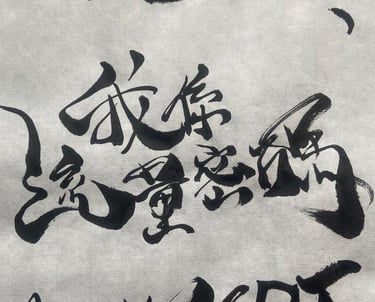 我係
流量密碼